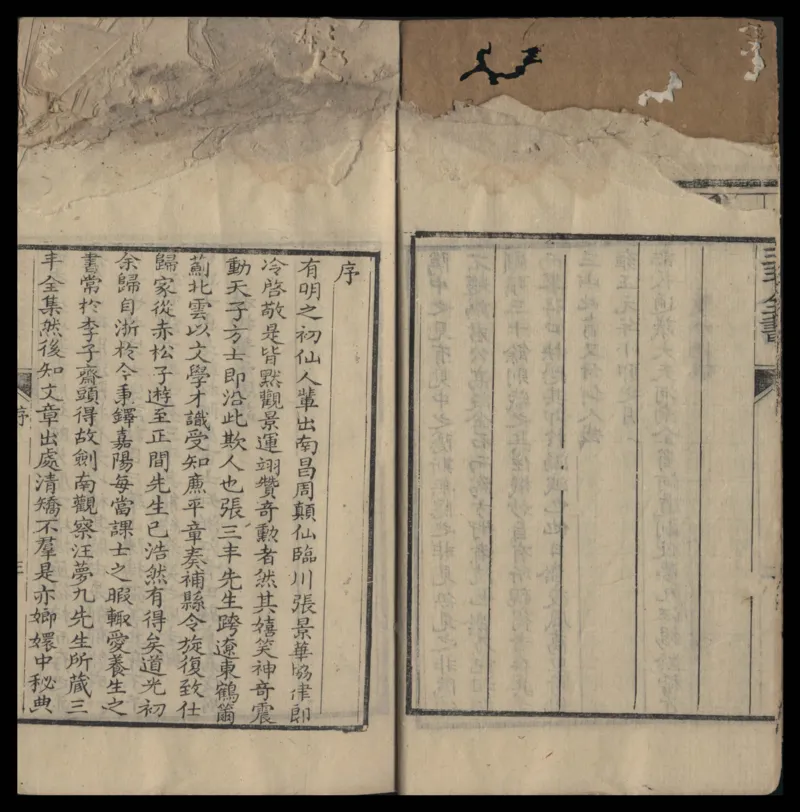 三丰全書
序
有明之初仙人輩出南昌周顛仙臨川張景華協律郎
冷啓敬是皆默觀景運翊贊奇勳者然其嬉笑神奇震
動天子方士即沿此欺人也張三丰先生跨遼東鶴籋
薊北雲以文學才識受知廉平章奏補縣令旋復致仕
歸家從赤松子遊至正間先生已浩然有得矣道光初
余歸自浙於今秉鐸嘉陽每當課士之暇輒愛養生之
書常於李子齋頭得故劍南觀察汪夢九先生所藏三
丰全集然後知文章出處清矯不羣是亦嫏嬛中秘典
序